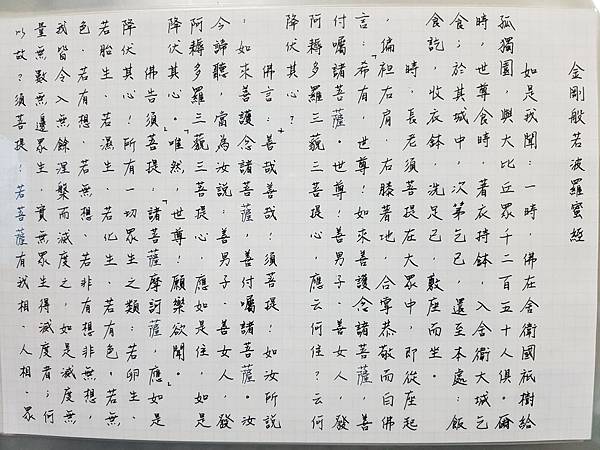 金剛般若波羅蜜經
如是我聞：一時，佛在舍衛國祇樹給
孤獨園，與大比丘眾千二百五十人俱。爾
時，世尊食時，著衣持鉢，入舍衛大城乞
食；於其城中，次第乞已，還至本處；飯
食訖，收衣鉢，洗足已，敷座而坐。
時，長老須菩提在大眾中，即從座起
，偏袒右肩，右膝著地，合掌恭敬而白佛
言：「希有，世尊！如來善護念諸菩薩，善
付囑諸菩薩。世尊！善男子、善女人，發
阿耨多羅三藐三菩提心，應云何住？云何
降伏其心？」
佛言：「善哉善哉！須菩提！如汝所說
：如來善護念諸菩薩，善付囑諸菩薩。汝
今諦聽，當為汝說：善男子、善女人，發
阿耨多羅三藐三菩提心，應如是住，如是
降伏其心。」「唯然，世尊！願樂欲聞。」
佛告須菩提：「諸菩薩摩訶薩，應如是
降伏其心！所有一切眾生之類：若卵生、
若胎生、若濕生、若化生，若有色、若無
色，若有想、若無想、若非有想非無想，
我皆令入無餘涅槃而滅度之，如是滅度無
量無數無邊眾生，實無眾生得滅度者；何
以故？須菩提！若菩薩有我相、人相、眾